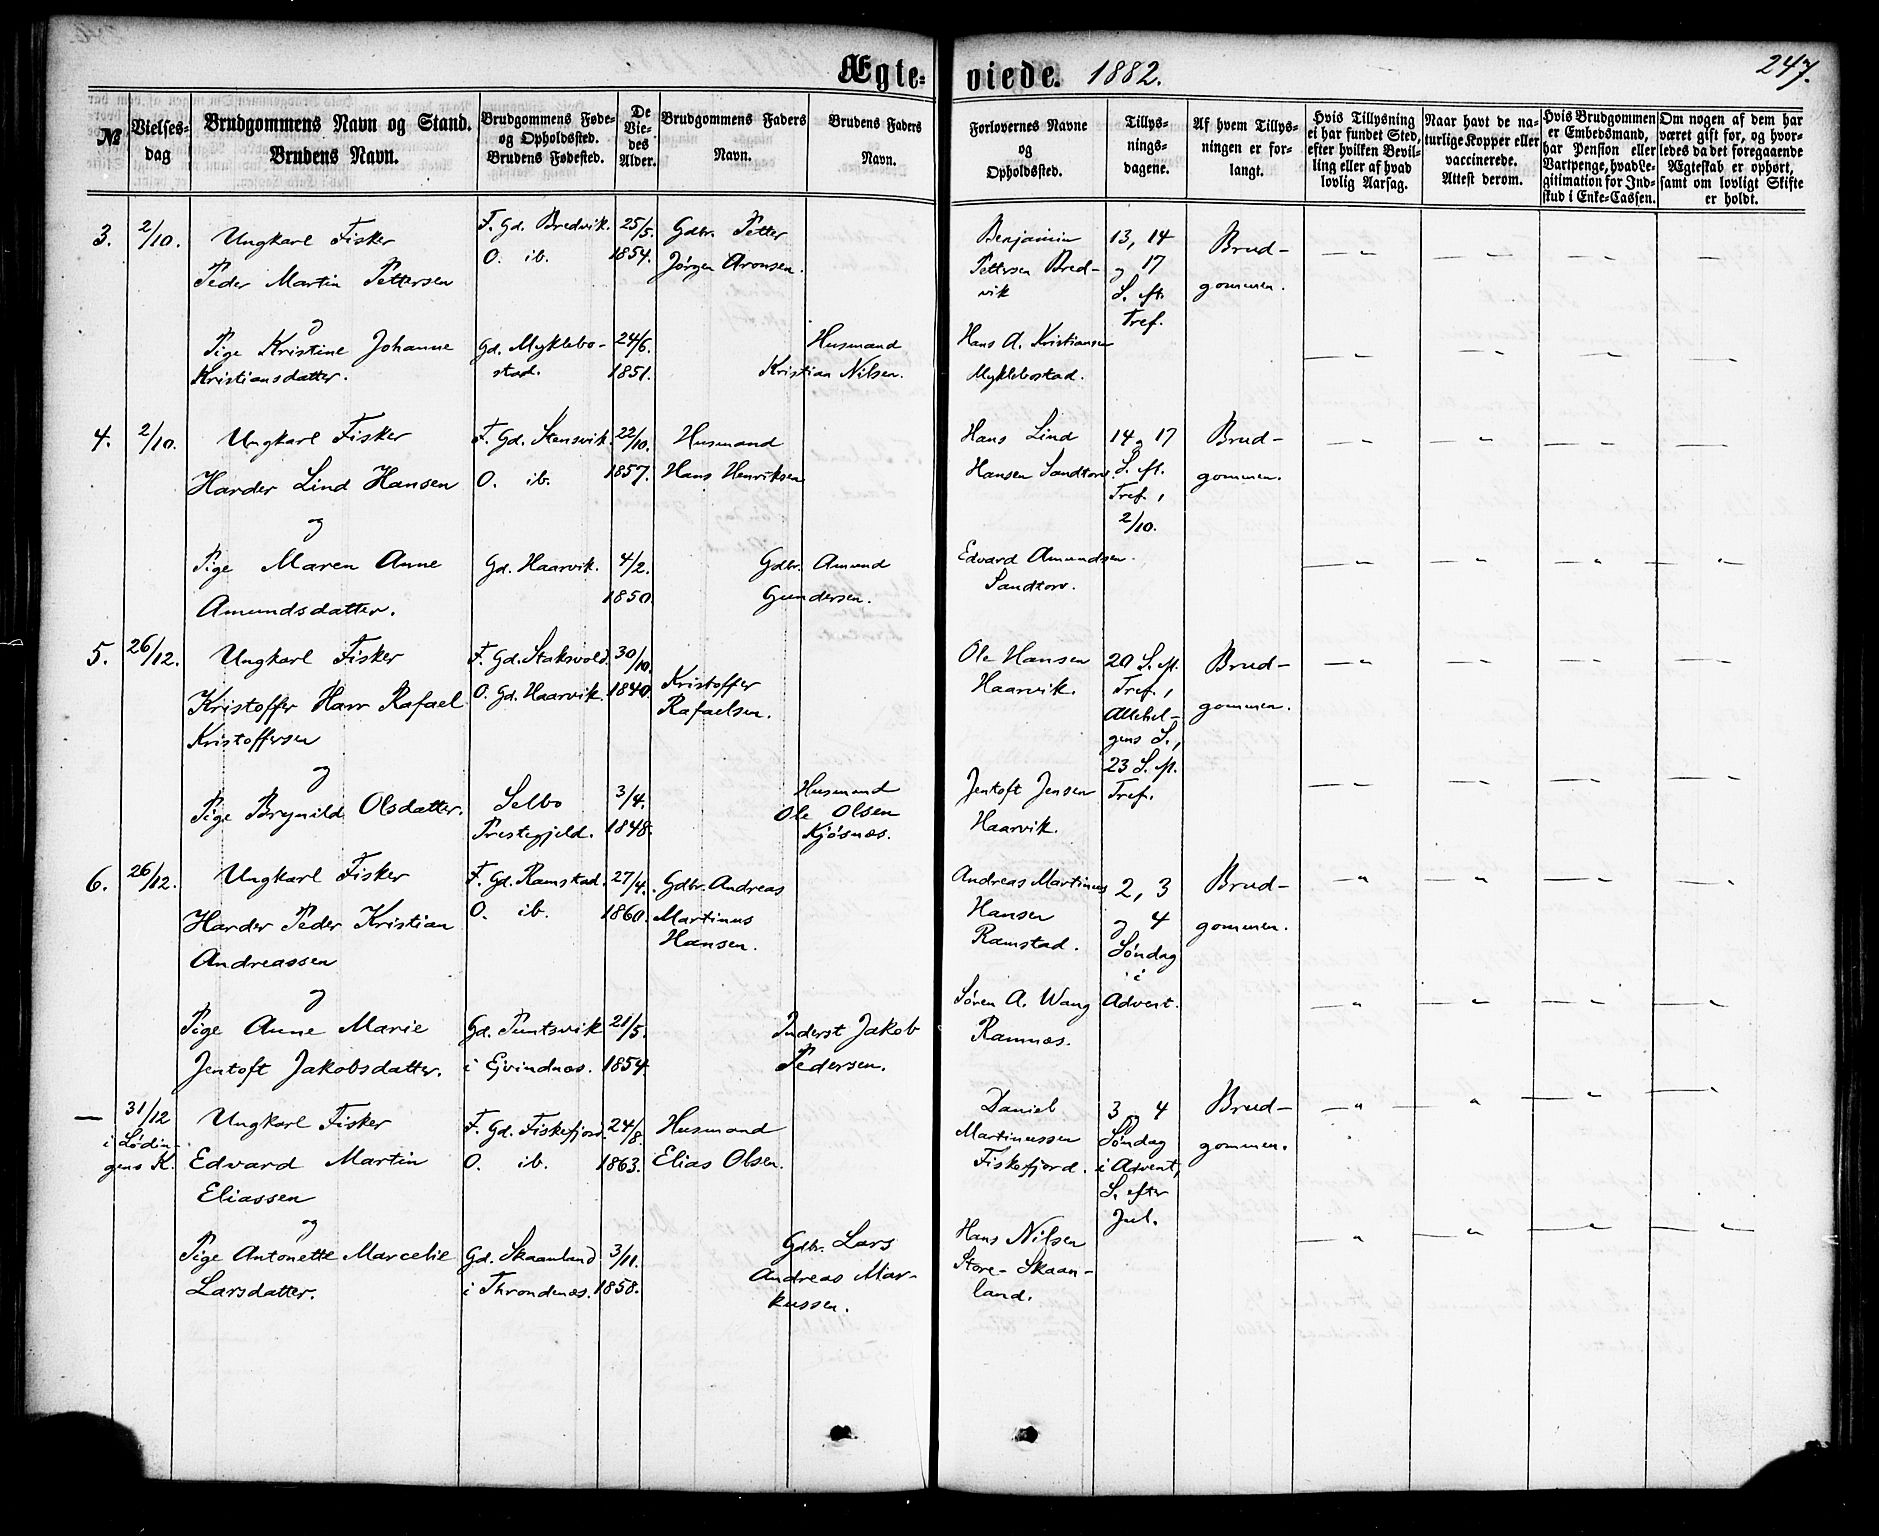 Ægte-
viede. 1882.
247.
№
Vielses-
dag
Brudgommens Navn og Stand.
Brudens Navn.
Brudgommens Føde-
og Opholdssted.
Brudens Fødested.
De
Vie-
des
Alder.
Brudgommens Faders
Navn.
Brudens Faders
Navn.
Forlovernes Navne
og
Opholdssted.
Tillys-
nings-
dagene.
Af hvem Tillys-
ningen er for-
langt.
Hvis Tillysning
ei har fundet Sted,
efter hvilken Bevil-
ling eller af hvad
lovlig Aarsag.
Naar havt de na-
turlige Kopper eller
vaccinerede.
Attest derom.
Hvis Brudgommen
er Embedsmand,
har Pension eller
Vartpenge, hvad Le-
gitimation for Ind-
skud i Enke-Cassen.
Om nogen af dem har
været gift før, og hvor-
ledes da det foregaaende
Ægteskab er ophørt,
samt om lovligt Skifte
er holdt.
3.
2/10.
Ungkarl Fisker
Peder Martin Pettersen
og
Pige Kristine Johanne
Kristiansdatter.
F. Gd. Bredvik.
O. ib.
Gd. Myklebo-
stad.
25/5.
1854.
24/6.
1851.
Gdbr. Petter
Jørgen Aronsen.
Husmand
Kristian Nilsen.
Benjamin
Pettersen Bred-
vik
Hans A. Kristiansen
Myklebostad.
13, 14
og 17
S. eft.
Tref.
Brud-
gommen.
4.
2/10.
Ungkarl Fisker
Harder Lind Hansen
og
Pige Maren Anne
Amundsdatter.
F. Gd. Stensvik.
O. ib.
Gd. Haarvik.
22/10.
1857.
4/2.
1850.
Husmand
Hans Henriksen
Gdbr. Amund
Gundersen.
Hans Lind
Hansen Sandtorv.
Edvard Amundsen.
Sandtorv.
14 og 17
S. eft.
Tref.,
2/10.
Brud-
gommen.
5.
26/12.
Ungkarl Fisker
Kristoffer Harr Rafael
Kristoffersen
og
Pige Brynild Olsdatter.
F. Gd. Staksvold.
O. Gd. Haarvik.
Selbo
Prestegjeld.
30/10.
1840.
3/4.
1848.
Kristoffer
Rafaelsen.
Husmand
Ole Olsen
Kjøsnæs.
Ole Hansen
Haarvik.
Jentoft Jensen
Haarvik.
20 S. eft.
Tref.,
Allehel-
gens S.,
23 S. eft.
Tref.
Brud-
gommen.
6.
26/12.
Ungkarl Fisker
Harder Peder Kristian
Andreassen
og
Pige Anne Marie
Jentoft Jakobsdatter.
F. Gd. Ramstad.
O. ib.
Gd. Puntsvik
i Ejvindnæs.
27/4.
1860.
21/5.
1854.
Gdbr. Andreas
Martinus
Hansen.
Inderst Jakob
Pedersen.
Andreas Martinus
Hansen
Ramstad.
Søren A. Wang
Ramnæs.
2, 3
og 4
Søndag
i
Advent.
Brud-
gommen.
—
31/12
i Lødin-
gens K.
Ungkarl Fisker
Edvard Martin
Eliassen
og
Pige Antonette Marcelie
Larsdatter.
F. Gd. Fiskefjord.
O. ib.
Gd. Skaanland
i Throndenæs.
24/8.
1863.
3/11.
1858.
Husmand
Elias Olsen.
Gdbr. Lars
Andreas Mar-
kussen.
Daniel
Martinussen
Fiskefjord.
Hans Nilsen
Store-Skaan-
land.
3 og 4
Søndag
i Advent,
S. efter
Jul.
Brud-
gommen.